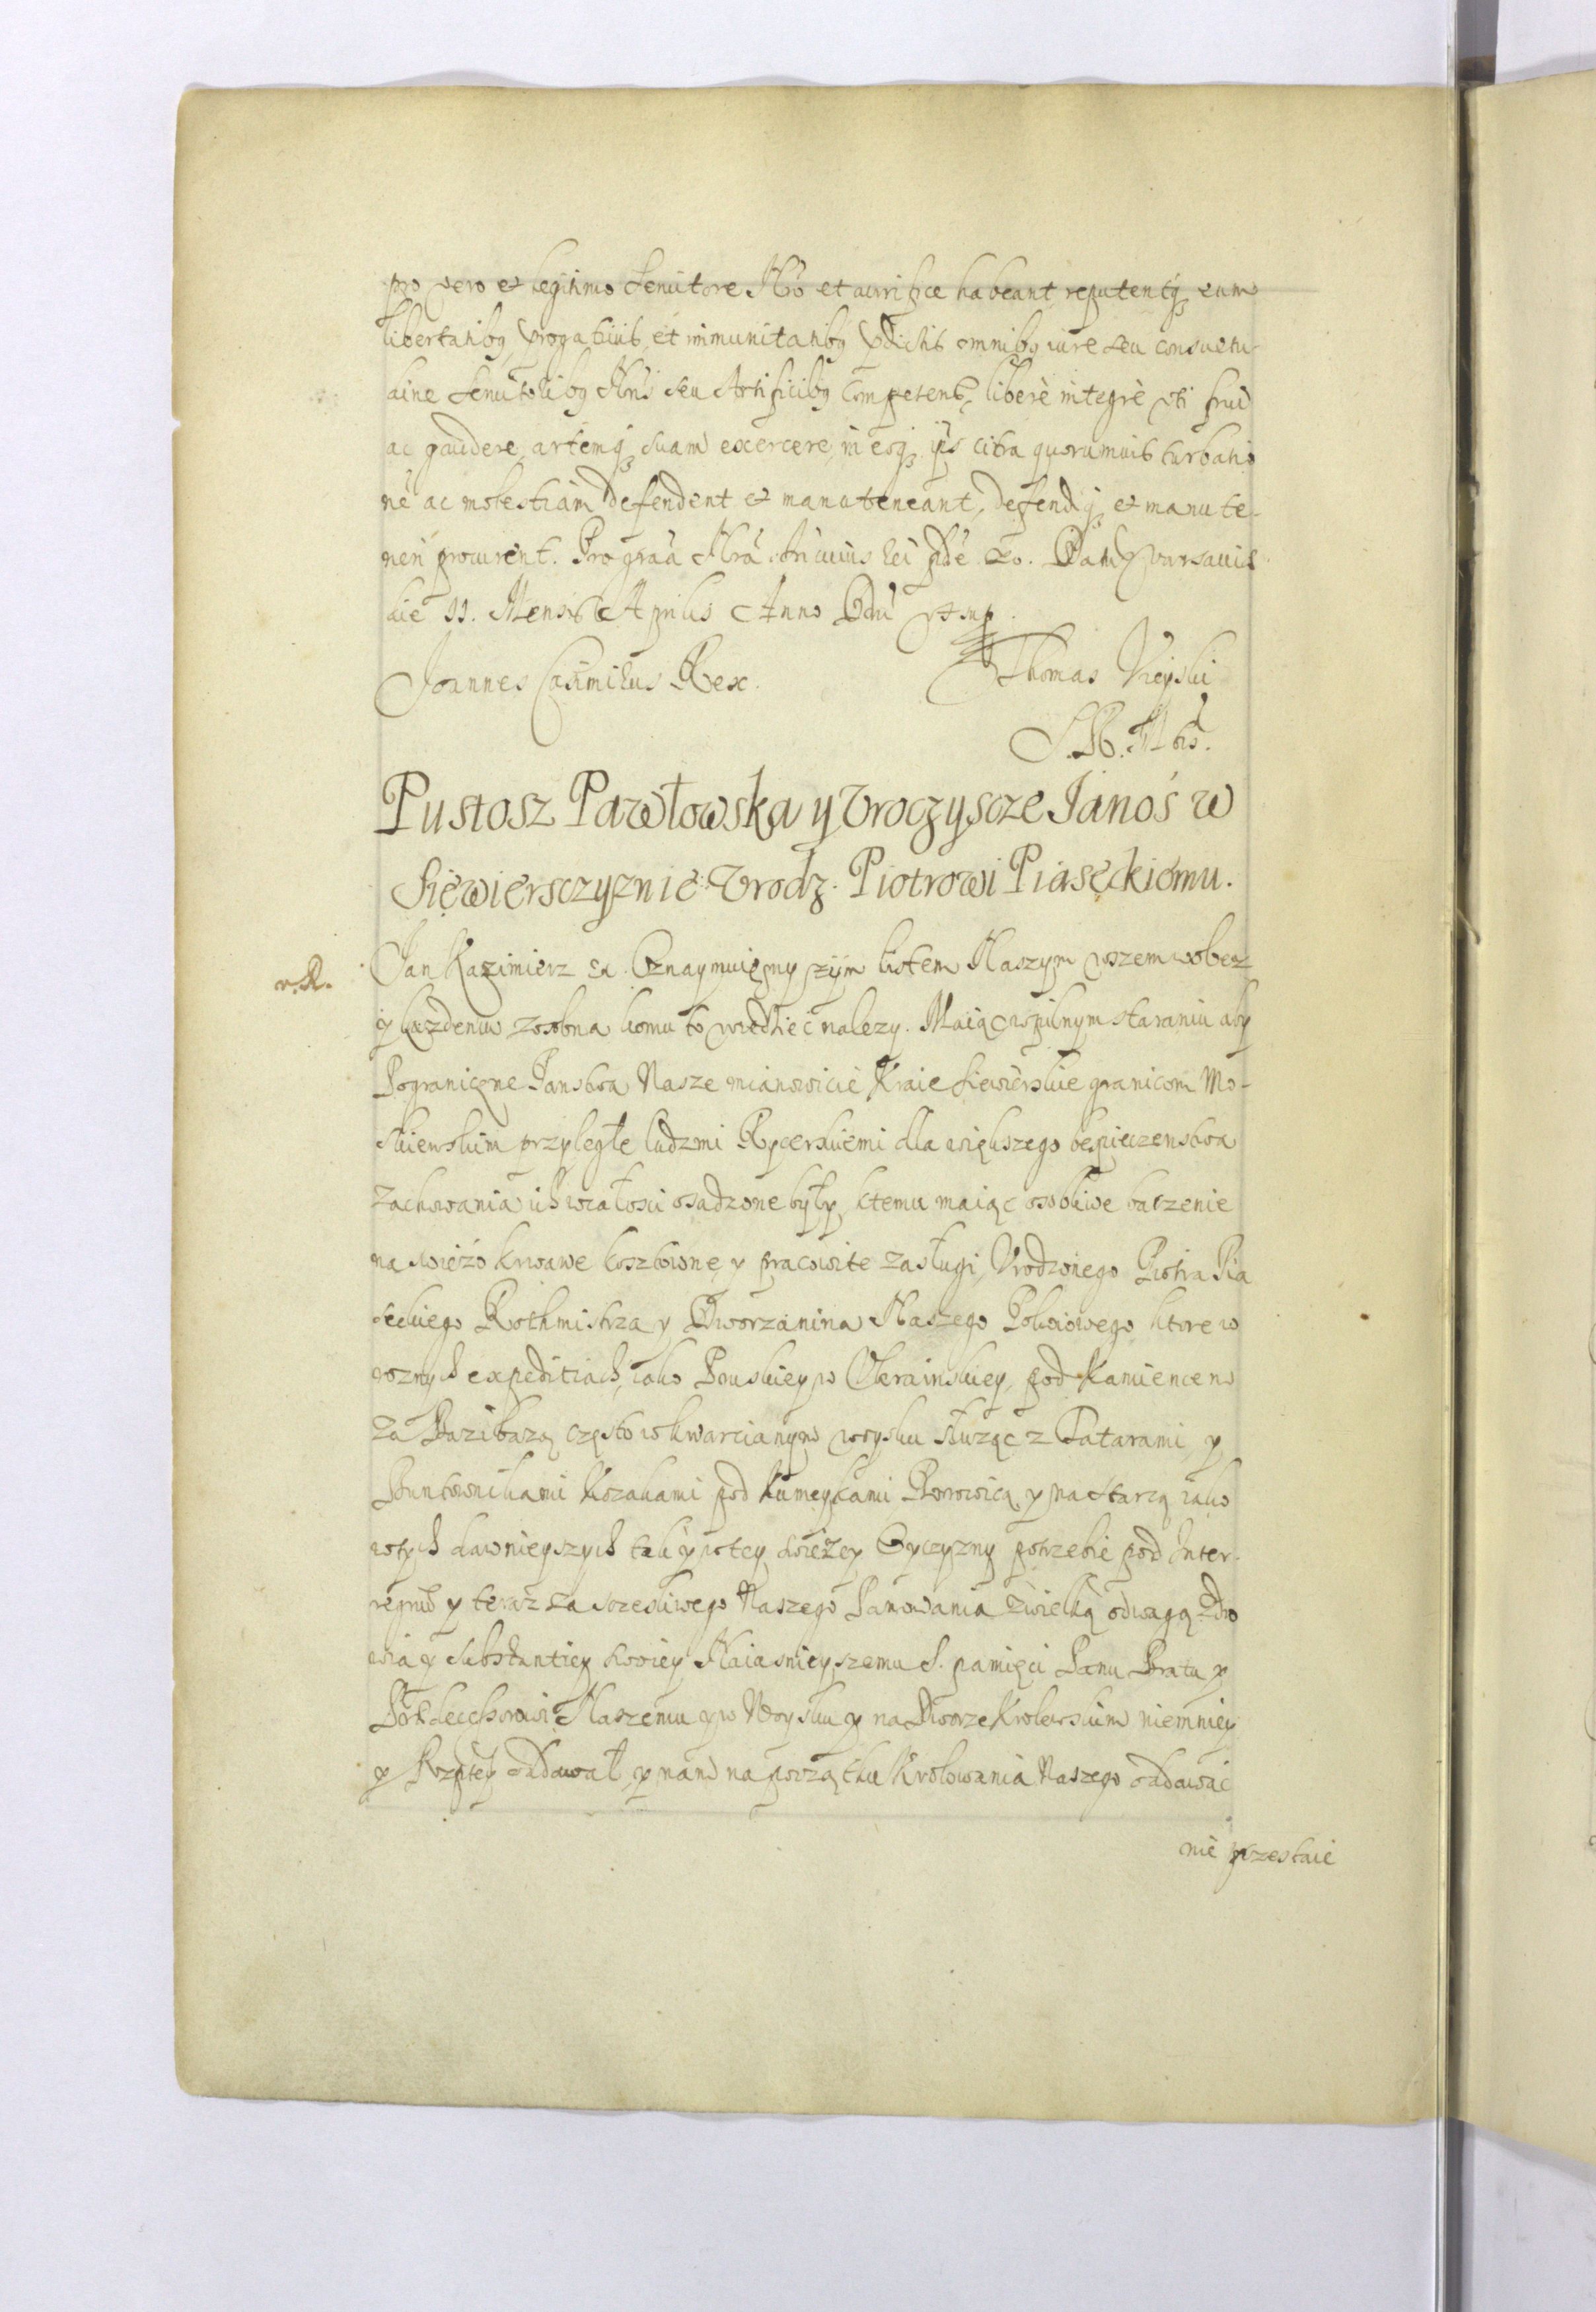 pro vero et legitimo Servitore Nro et aurifice habeant, reputentq₃ eum
libertatibq₃ prrogativis, et immunitatibq₃ pdictis omnibq₃ iure seu consuetu-
dine Servitoribq₃ Nris seu Artificibq₃ competent, libere integrè uti frui
ac gaudere, artemq₃ suam exercere, in eoq₃ ijs citra quorumvis turbatio
nē ac molestiam defendent et manuteneant, defendiq₃ et manute-
neri procurent. Pro graā Nrā Dat Varsaviae
die 11. Mensis Aprilis Anno Dni ut sup.
Joannes Casimirus Rex. Thomas Uieyski
S. R. Mtis.
Pustosz Pawłowska y Uroczyscze Janoś w
Siewiersczyznie Urodz. Piotrowi Piaseckiemu.
v.R. Jan Kazimierz &c. Oznaymuięmy tym listem Naszym wszem wobec
y kazdemu zosobna komu to wiedzieć nalezy. Maiąc wpilnym staraniu aby
Pograniczne Panstwa Nasze mianowicie Kraie Siewierskie granicom Mo-
skiewskim przyległe ludzmi Rycerskiemi dla większego bespieczenstwa
zachowania ich wcałosci osadzone były, ktemu maiąc osobliwe baczenie
na swieżo krwawe kosztowne, y pracowite zasługi, Urodzonego Piotra Pia
seckiego Rothmistrza y Dworzanina Naszego Pokoiowego, ktore w
roznych expeditiach, iako Pruskiey, w Ukrainskiey, pod Kamiencem
za często w kwarcianym woysku służąc z Tatarami, y
Buntownikami Kozakami pod Kumeykami Borowicą, y na Starcą iako
wtych dawnieyszych tak y wtey swieżey Oyczyzny potrzebie pod Inter-
regnū y teraz za sczesliwego Naszego Panowania zwielką odwagą zdro
wia y substantiey swoiey Naiasnieyszemu S. pamięci Panu Bratu y
Naszemu y w Woysku y na Dworze Krolewskim niemniey
y Rzptey oddawał, y nam na początku Krolowania Naszego oddawać
nie przestaie